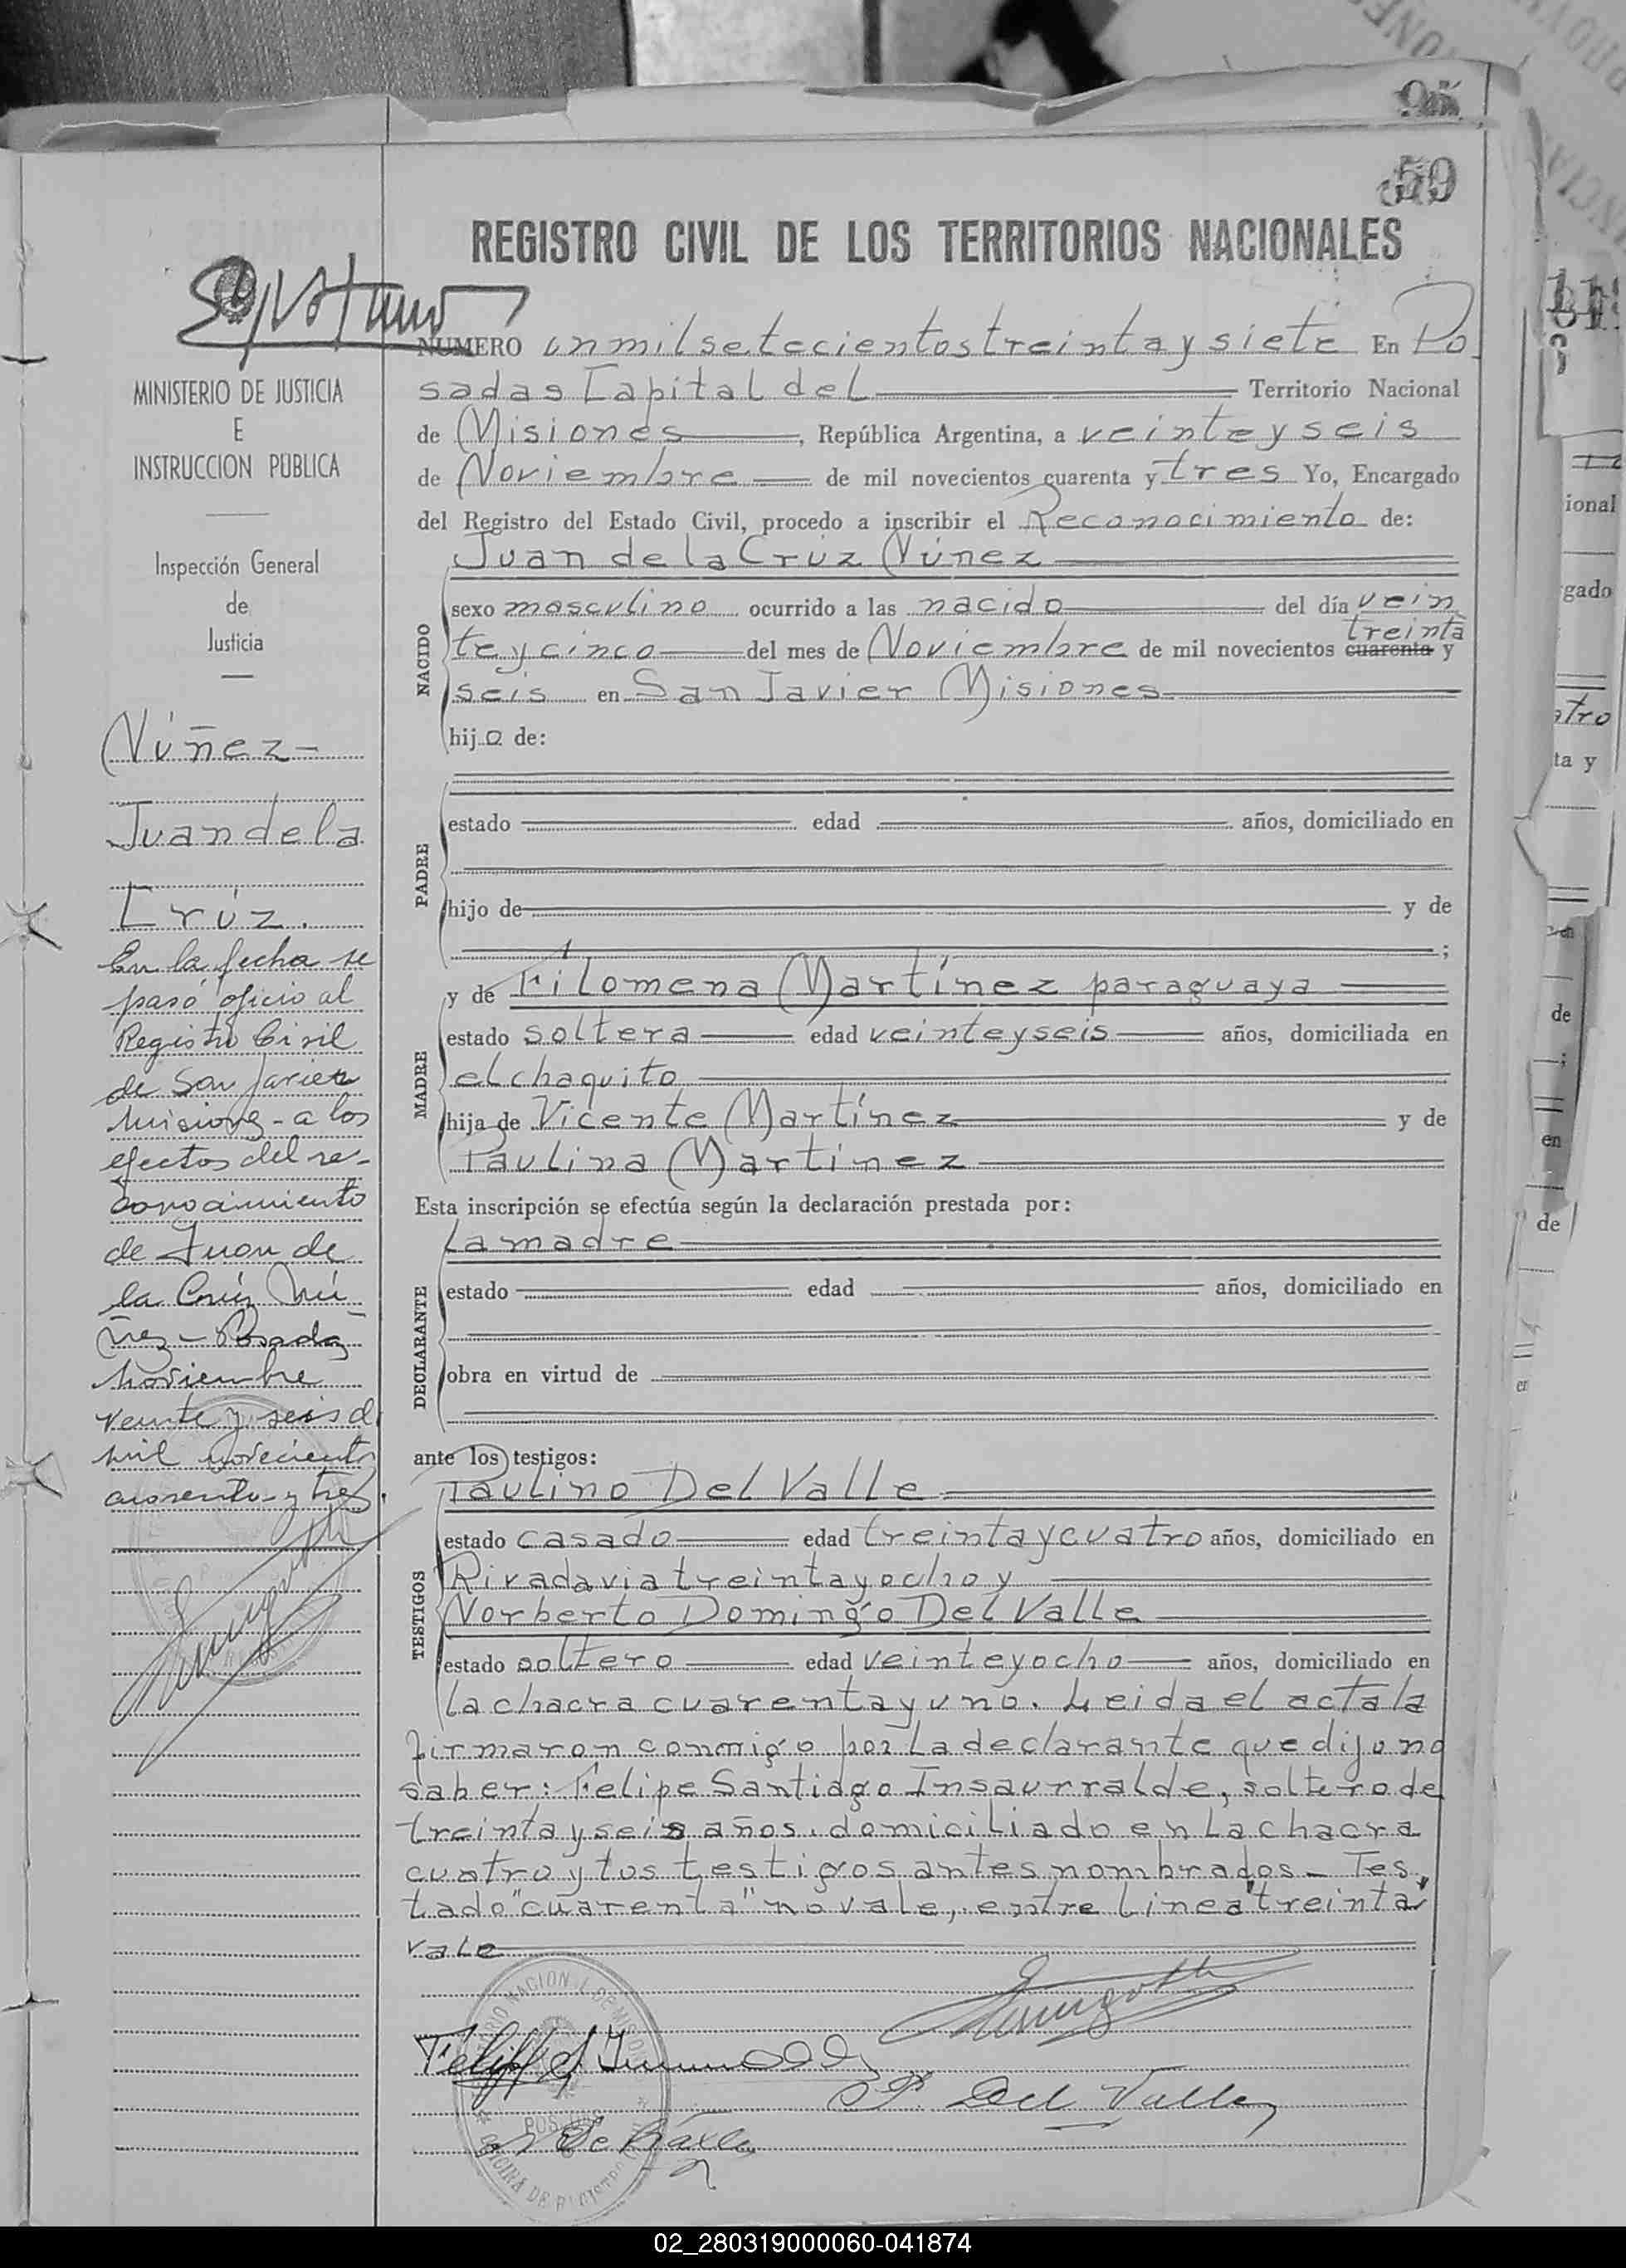 59
REGISTRO CIVIL DE LOS TERRITORIOS NACIONALES
NUMERO un mil setecientos treinta y siete En Po
sadas Capital del Territorio Nacional
de Misiones, República Argentina, a veinte y seis
de Noviembre de mil novecientos cuarenta y tres Yo, Encargado
del Registro del Estado Civil, procedo a inscribir el Reconocimiento de:
Juan de la Crúz Núnez
NACIDO
sexo masculino ocurrido a las nacido del día vein
treinta
te y cinco del mes de Noviembre de mil novecientos cuarenta y
seis en San Javier Misiones
hijo de:
PADRE
estado edad años, domiciliado en
hijo de y de
;
MADRE
y de Filomena Martínez paraguaya
estado soltera edad veinte y seis años, domiciliada en
el chaquito
hija de Vicente Martínez y de
Paulina Martinez
Esta inscripción se efectúa según la declaración prestada por:
DECLARANTE
La madre
estado edad años, domiciliado en
obra en virtud de
ante los testigos:
TESTIGOS
Paulino Del Valle
estado casado edad treinta y cuatro años, domiciliado en
Rivadavia treinta y ocho y
Norberto Domingo Del Valle
estado soltero edad veinte y ocho años, domiciliado en
la chacra cuarenta y uno. Leida el acta la
firmaron conmigo por La declarante que dijo no
saber: Felipe Santiago Insaurralde, soltero de
treinta y seis años. domiciliado en La chacra
cuatro y los testigos antes nombrados - Tes
tado "cuarenta" no vale, entre linea "treinta"
vale
P. Del Valle
MINISTERIO DE JUSTICIA
E
INSTRUCCION PUBLICA
Inspección General
de
Justicia
Núñez-
Juan de la
Crúz.
En la fecha se
pasó oficio al
Registro Civil
de San Javier
Misiones - a los
efectos del re-
conocimiento
de Juan de
la Crúz Nú
ñez - Posadas
Noviembre
veinte y seis d
mil novecientos
cuarenta y tres.
ional
gado
atro
ta y
en
de
;
en
de
02_280319000060-041874